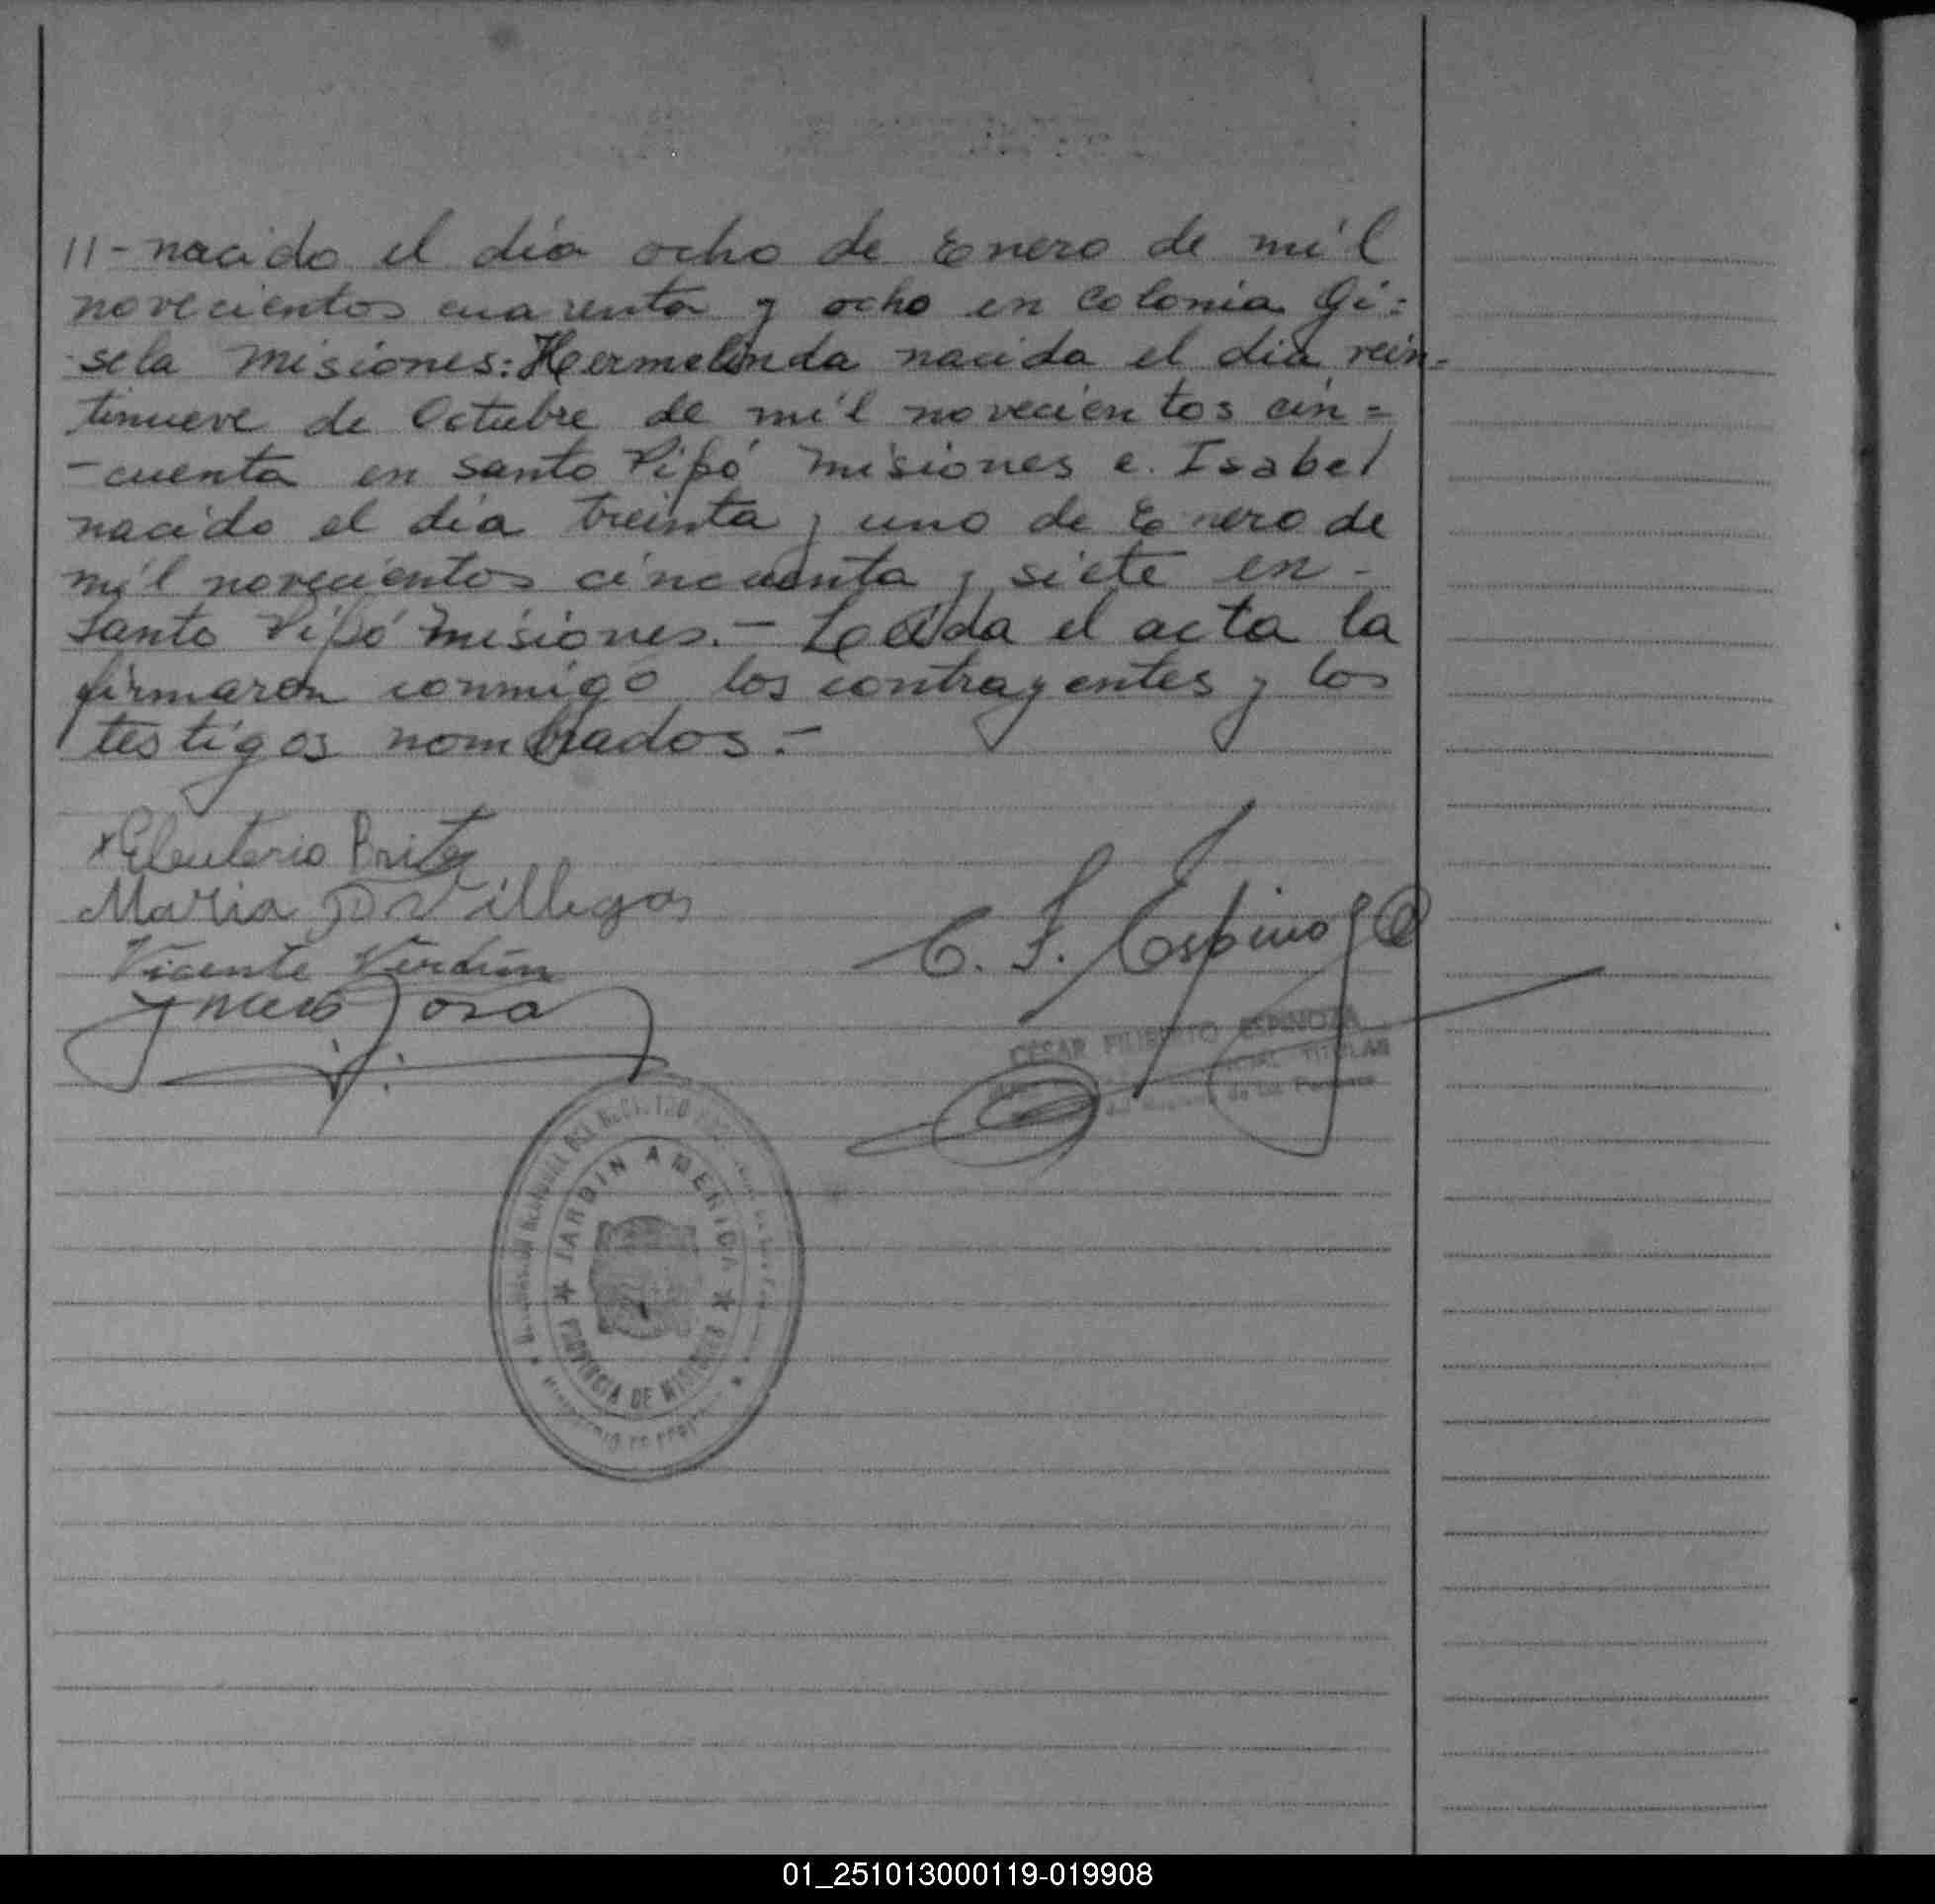 11-nacido el día ocho de Enero de mil
novecientos cuarenta y ocho en Colonia Gi=
-sela Misiones: Hermelinda nacida el dia vein-
tinueve de Octubre de mil novecientos cin=
-cuenta en Santo Pipó Misiones e. Isabel
nacido el día treinta y uno de Enero de
mil novecientos cincuenta y siete en -
Santo Pipó Misiones.- Leída el acta la
firmaron conmigo los contrayentes y los
testigos nombrados.-
x Eleuterio Britez
Maria D Villegas
Vicente Verdún
Sosa
C. F. Espinoza
CESAR FILIBERTO ESPINOZA
TITULAR
de las Personas
JARDIN AMERICA
PROVINCIA DE MISIONES
01_251013000119-019908